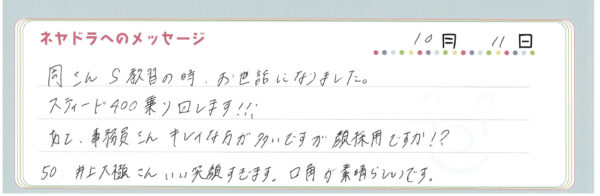 ネヤドラへのメッセージ
10月 11日
岡さん S教習の時、お世話になりました。
スティード400乗り回します!!!
あと、事務員さん キレイな方が多いですが顔採用ですか!?
50 井上大極さんいい笑顔すぎます。口角が素晴らしいです。